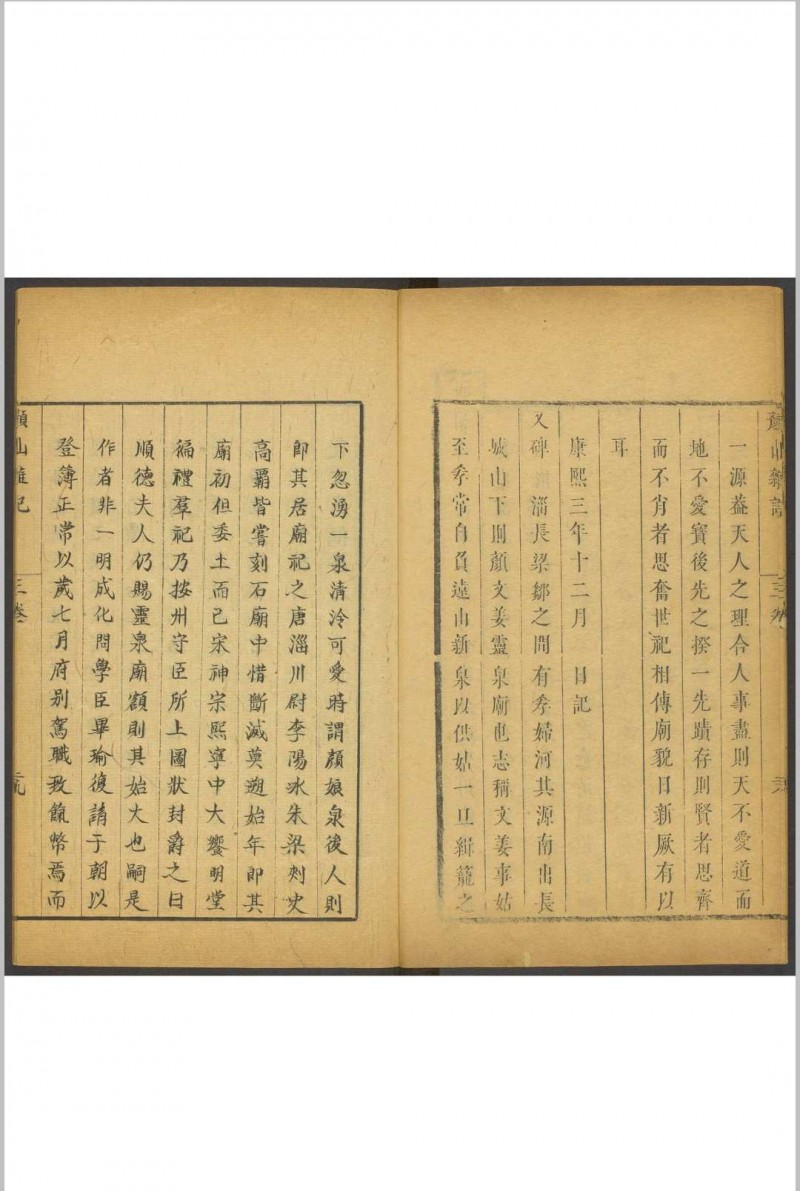 一源葢天人之理合人事盡則天不愛道而
地不愛寶後先之揆一先蹟存則賢者思齊
而不肖者思奮世祀相傳廟貌日新厥有以
耳
康熙三年十二月 日記
又碑 淄長梁鄒之間有孝婦河其源南出長
城山下則顏文姜靈泉廟也志稱文姜事姑
至孝常自負遠山新泉以供姑一旦緝籠之
三卷
下忽湧一泉清泠可愛時謂顏娘泉後人則
卽其居廟祀之唐淄川尉李陽冰朱梁刺史
高霸皆嘗刻石廟中惜斷滅莫遡始年卽其
廟初但委土而已宋神宗熙寧中大饗明堂
徧禮羣祀乃按州守臣所上圖狀封爵之曰
順德夫人仍賜靈泉廟額則其始大也嗣是
作者非一明成化間學臣畢瑜復請于朝以
登簿正常以歲七月府別駕職致餼幣焉而
顏山雜記
三卷